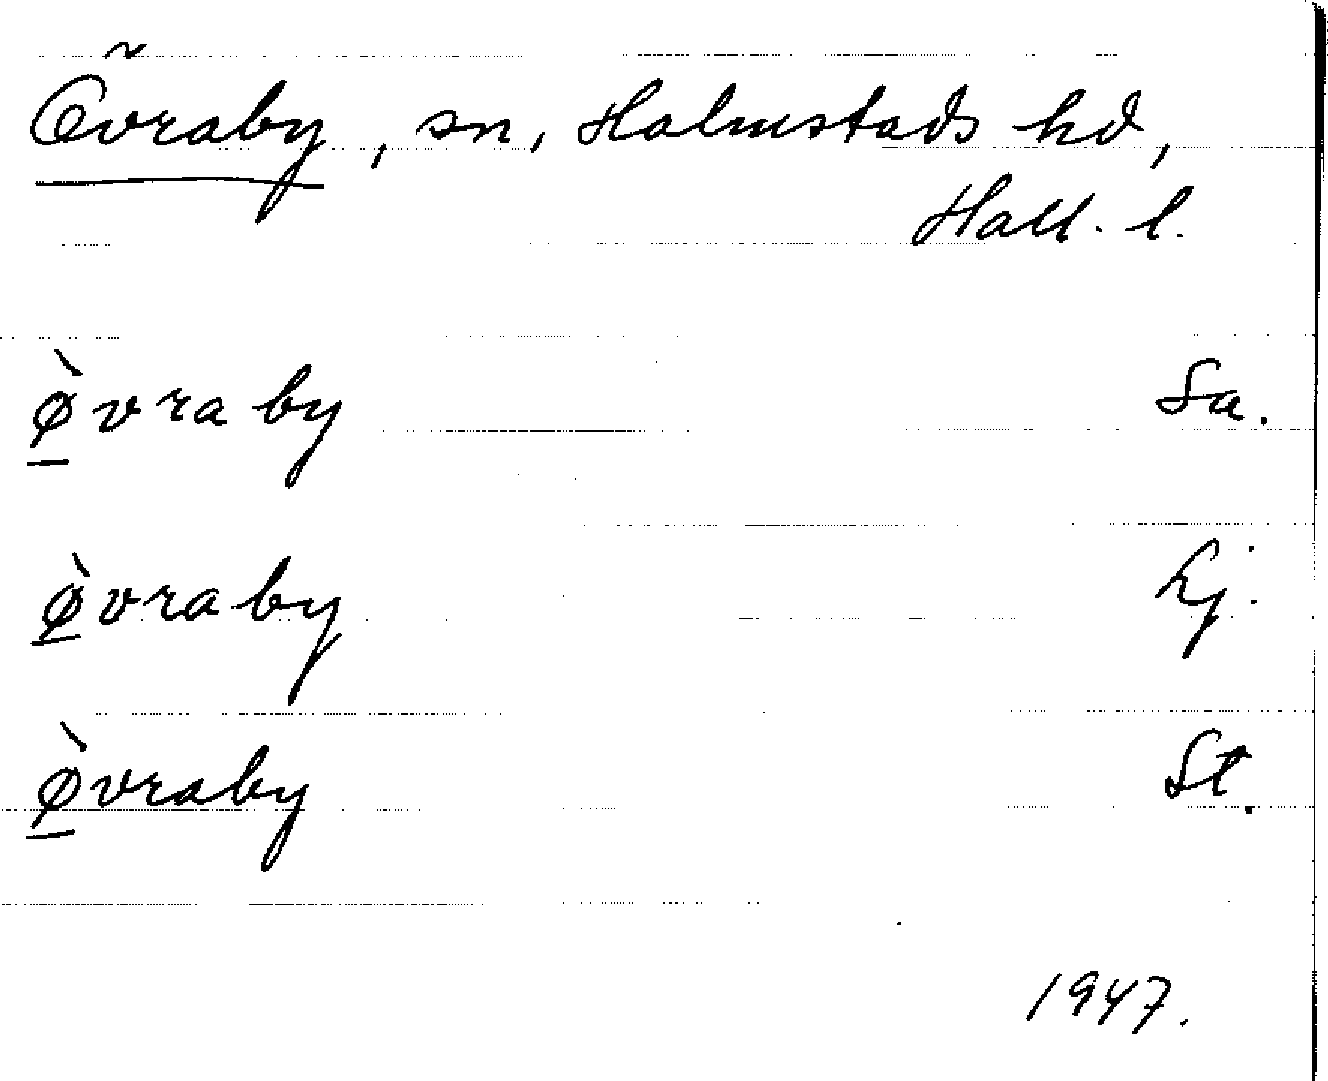 Övraby, sn, Halmstads hd,
Hall. l.
ø̱̀vraby Sa.
ø̱̀vraby Lj.
ø̱̀vraby St.
1947.